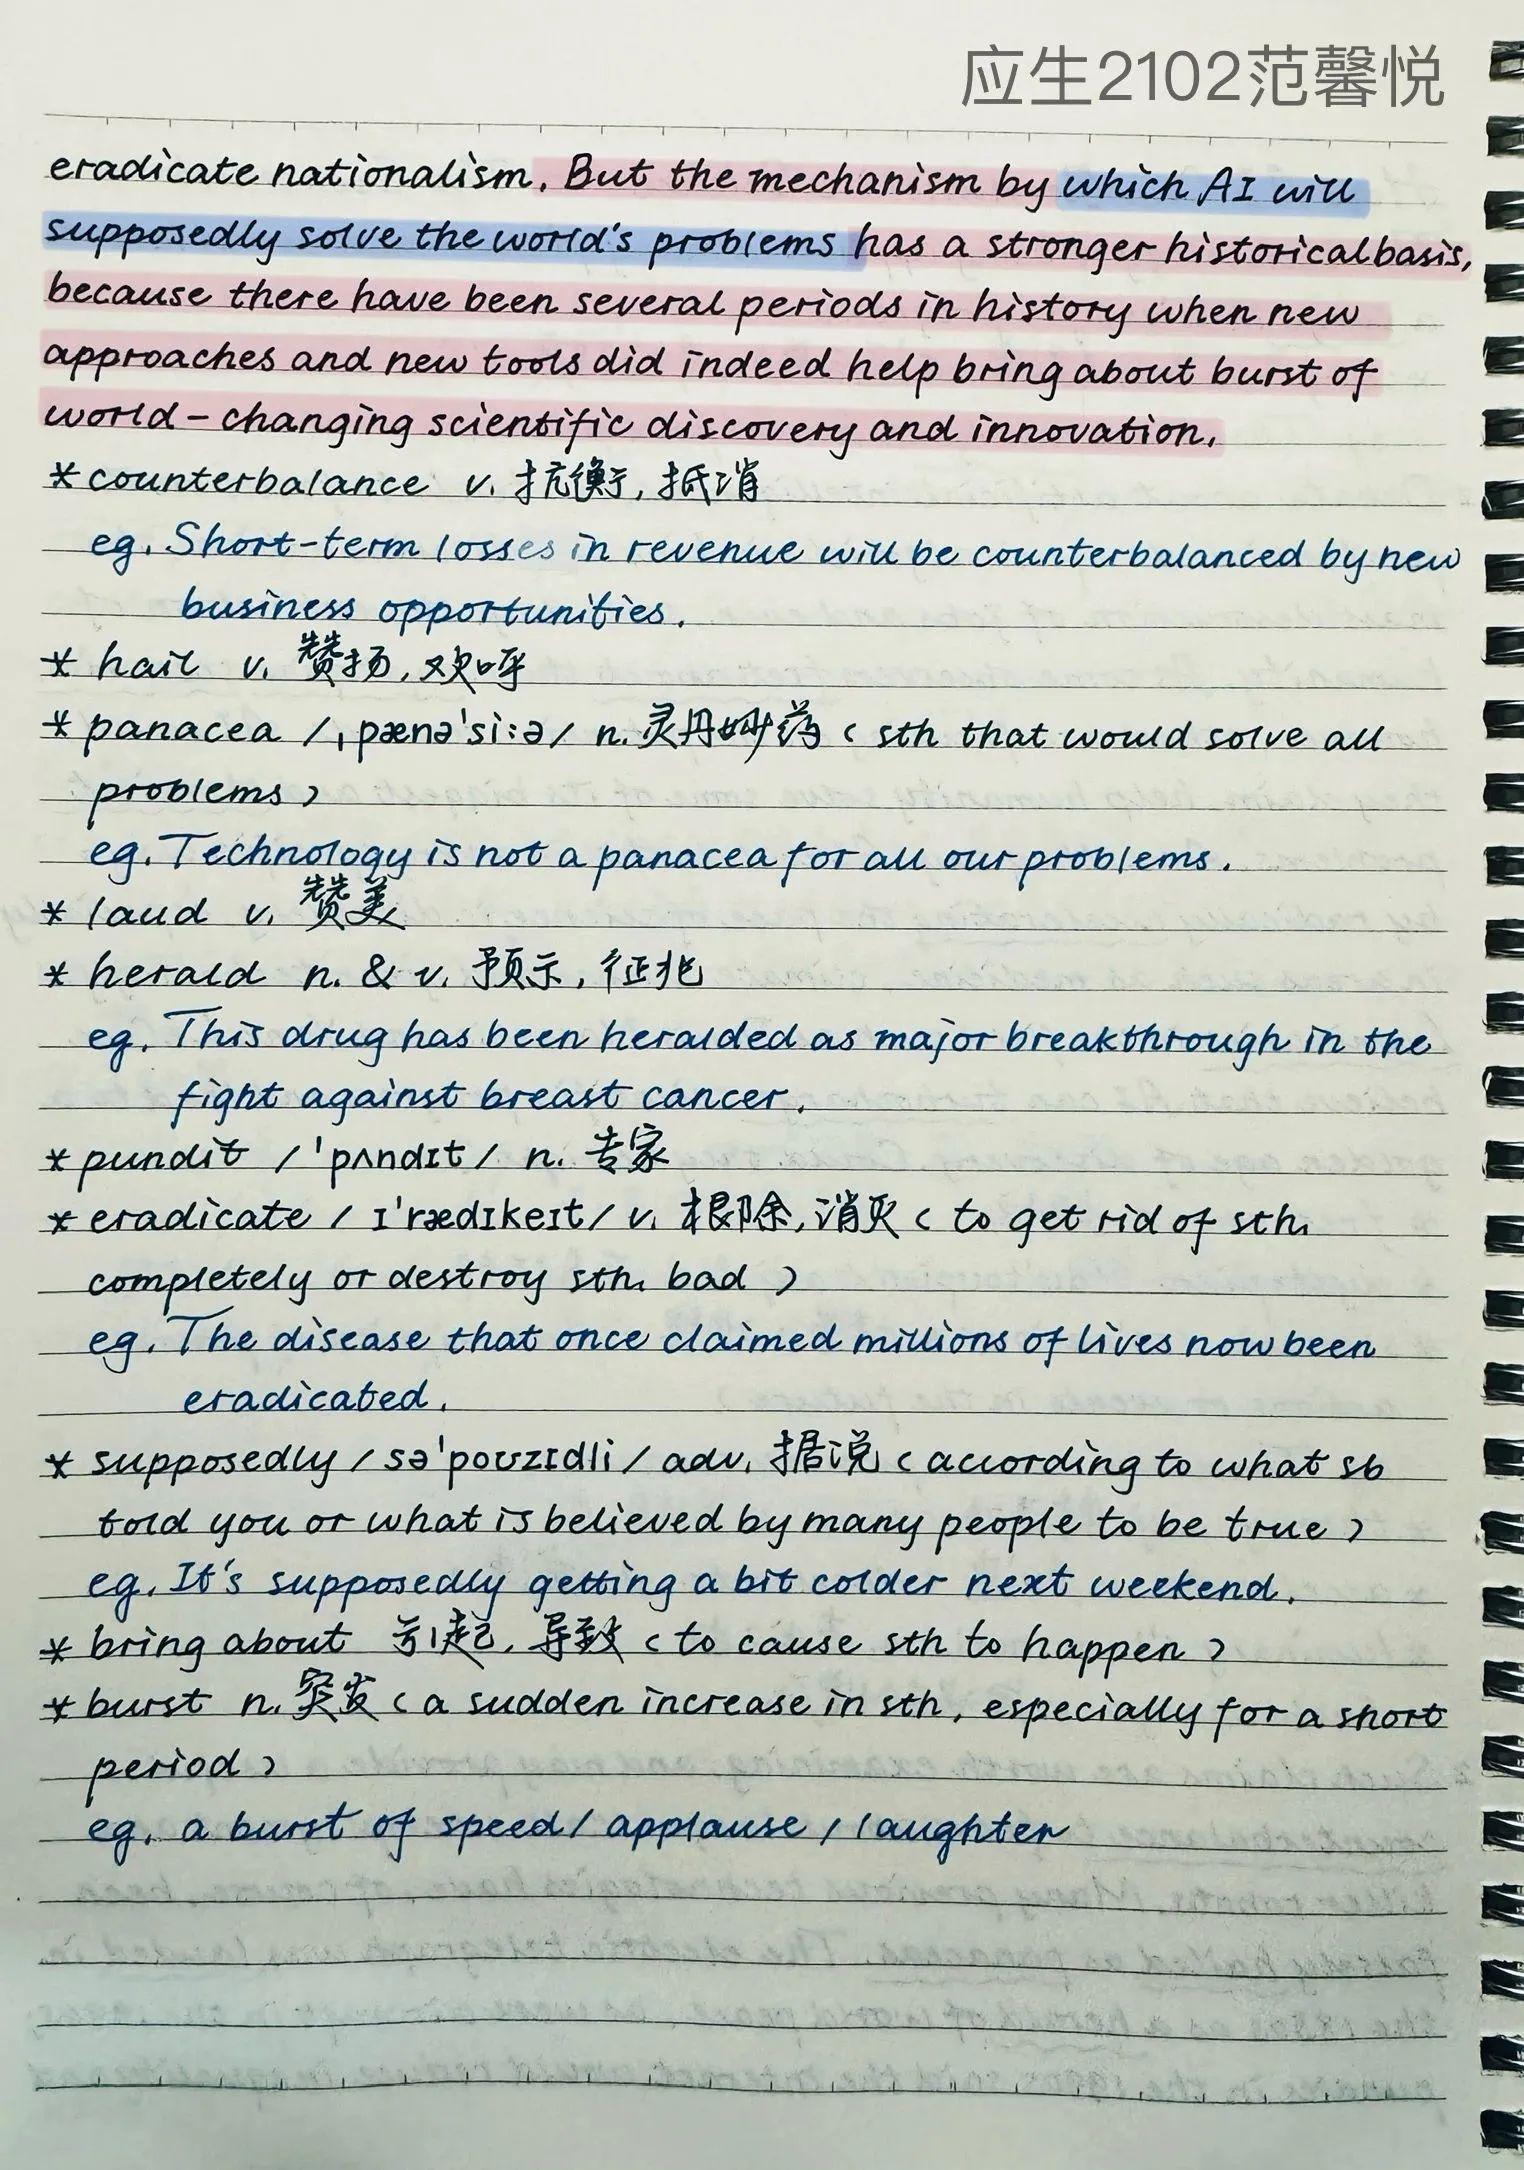 应生2102范馨悦
eradicate nationalism. But the mechanism by which AI will
supposedly solve the world's problems has a stronger historical basis,
because there have been several periods in history when new
approaches and new tools did indeed help bring about burst of
world-changing scientific discovery and innovation.
* counterbalance v. 抗衡, 抵消
eg. Short-term losses in revenue will be counterbalanced by new
business opportunities.
* hail v. 赞扬, 欢呼
* panacea /ˌpænəˈsiːə/ n. 灵丹妙药 ( sth that would solve all
problems )
eg. Technology is not a panacea for all our problems.
* laud v. 赞美
* herald n. & v. 预示, 征兆
eg. This drug has been heralded as major breakthrough in the
fight against breast cancer.
* pundit /ˈpʌndɪt/ n. 专家
* eradicate /ɪˈrædɪkeɪt/ v. 根除, 消灭 ( to get rid of sth.
completely or destroy sth. bad )
eg. The disease that once claimed millions of lives now been
eradicated.
* supposedly /səˈpoʊzɪdli/ adv. 据说 ( according to what sb
told you or what is believed by many people to be true )
eg. It's supposedly getting a bit colder next weekend.
* bring about 引起, 导致 ( to cause sth to happen )
* burst n. 突发 ( a sudden increase in sth, especially for a short
period )
eg. a burst of speed / applause / laughter